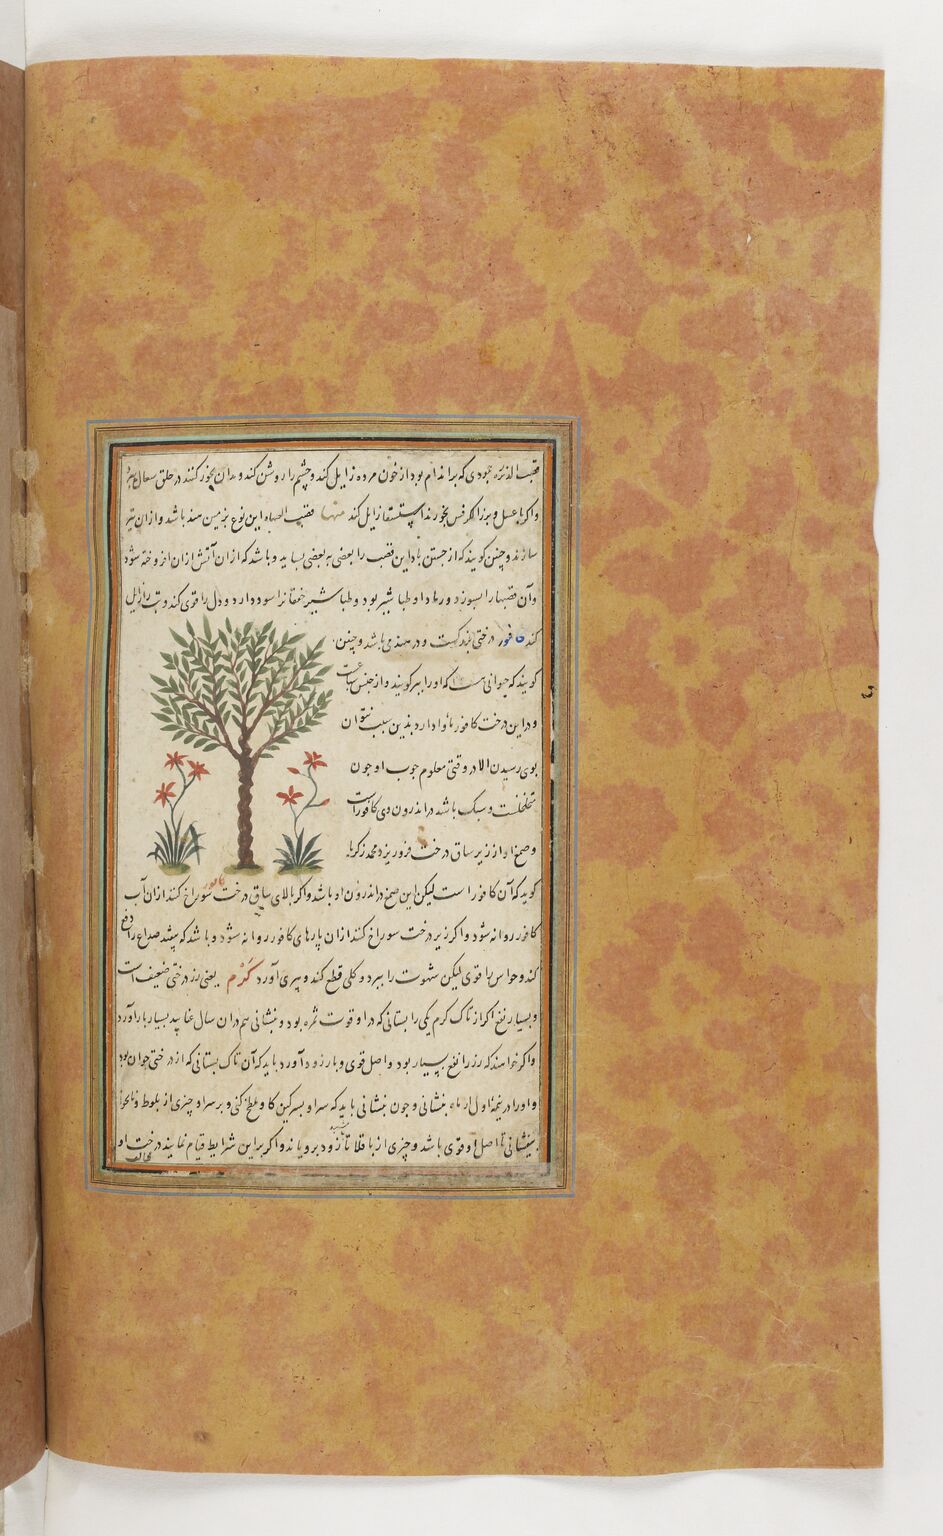 قصب الذریره جودی که بر اندام بود از خون مرده زایل کند و چشم را روشن کند و بدان بخور کنند در حلق سعال ببرد
و اکر با عسل و بزر الکرفس بخورند استسقا زایل کند منها قصب القناة این نوع بزمین هند باشد و ازان نیزه
سازند و چنین کویند که از جستن باد این قصب را بعضی به بعضی بساید و باشد که ازان آتش ازان افروخته شود
و آن قصبها را بسوزد و رماد او طباشیر بود و طباشیر خفقانرا سود دارد و دل را قوی کند و تب را زایل
کند کافور درختی بزرکست و در هند می باشد و چنین
کویند که حیوانی هست که او را ببر کویند و از جنس سباعست
و در این درخت کافور ماوا دارد بدین سبب نتوان
بوی رسیدن الا در وقتی معلوم چوب او چون
متخلخلست و سبک باشد در اندرون وی کافور است
و صمغ او از زیر ساق درخت فرو ریزد محمد زکریا
کوید که آن کافور است لیکن این صمغ در اندرون او باشد و اکر بالای ساق درخت کافور سوراخ کنند ازان آب
کافور روانه شود و اکر زیر درخت سوراخ کنند ازان پارهای کافور روانه شود و باشد که بیشتر صداع را دفع
کند و حواس را قوی لیکن شهوت را ببرد و کلی قطع کند و پیری آورد کرم یعنی رز درختی ضعیف است
و بسیار نفع اکر از تاک کرم یکی را بستانی که در او قوت ثمره بود و بنشانی هم دران سال غایبد بسیار بار آورد
و اکر خواهند که رز را نفع بسیار بود و اصل قوی و بار زود آورد باید که آن تاک بستانی که از درختی جوان بود
و او را در غره اول از ماه بنشانی و چون بنشانی باید که سر او بسرکین کاو ملطخ کنی و بر سر او چیزی از بلوط و نانخواه
بنشانی تا اصل او قوی باشد و چیزی از باقلا تا زود برویاند و اکر براین شرایط قیام نمایند درخت او
مخالف